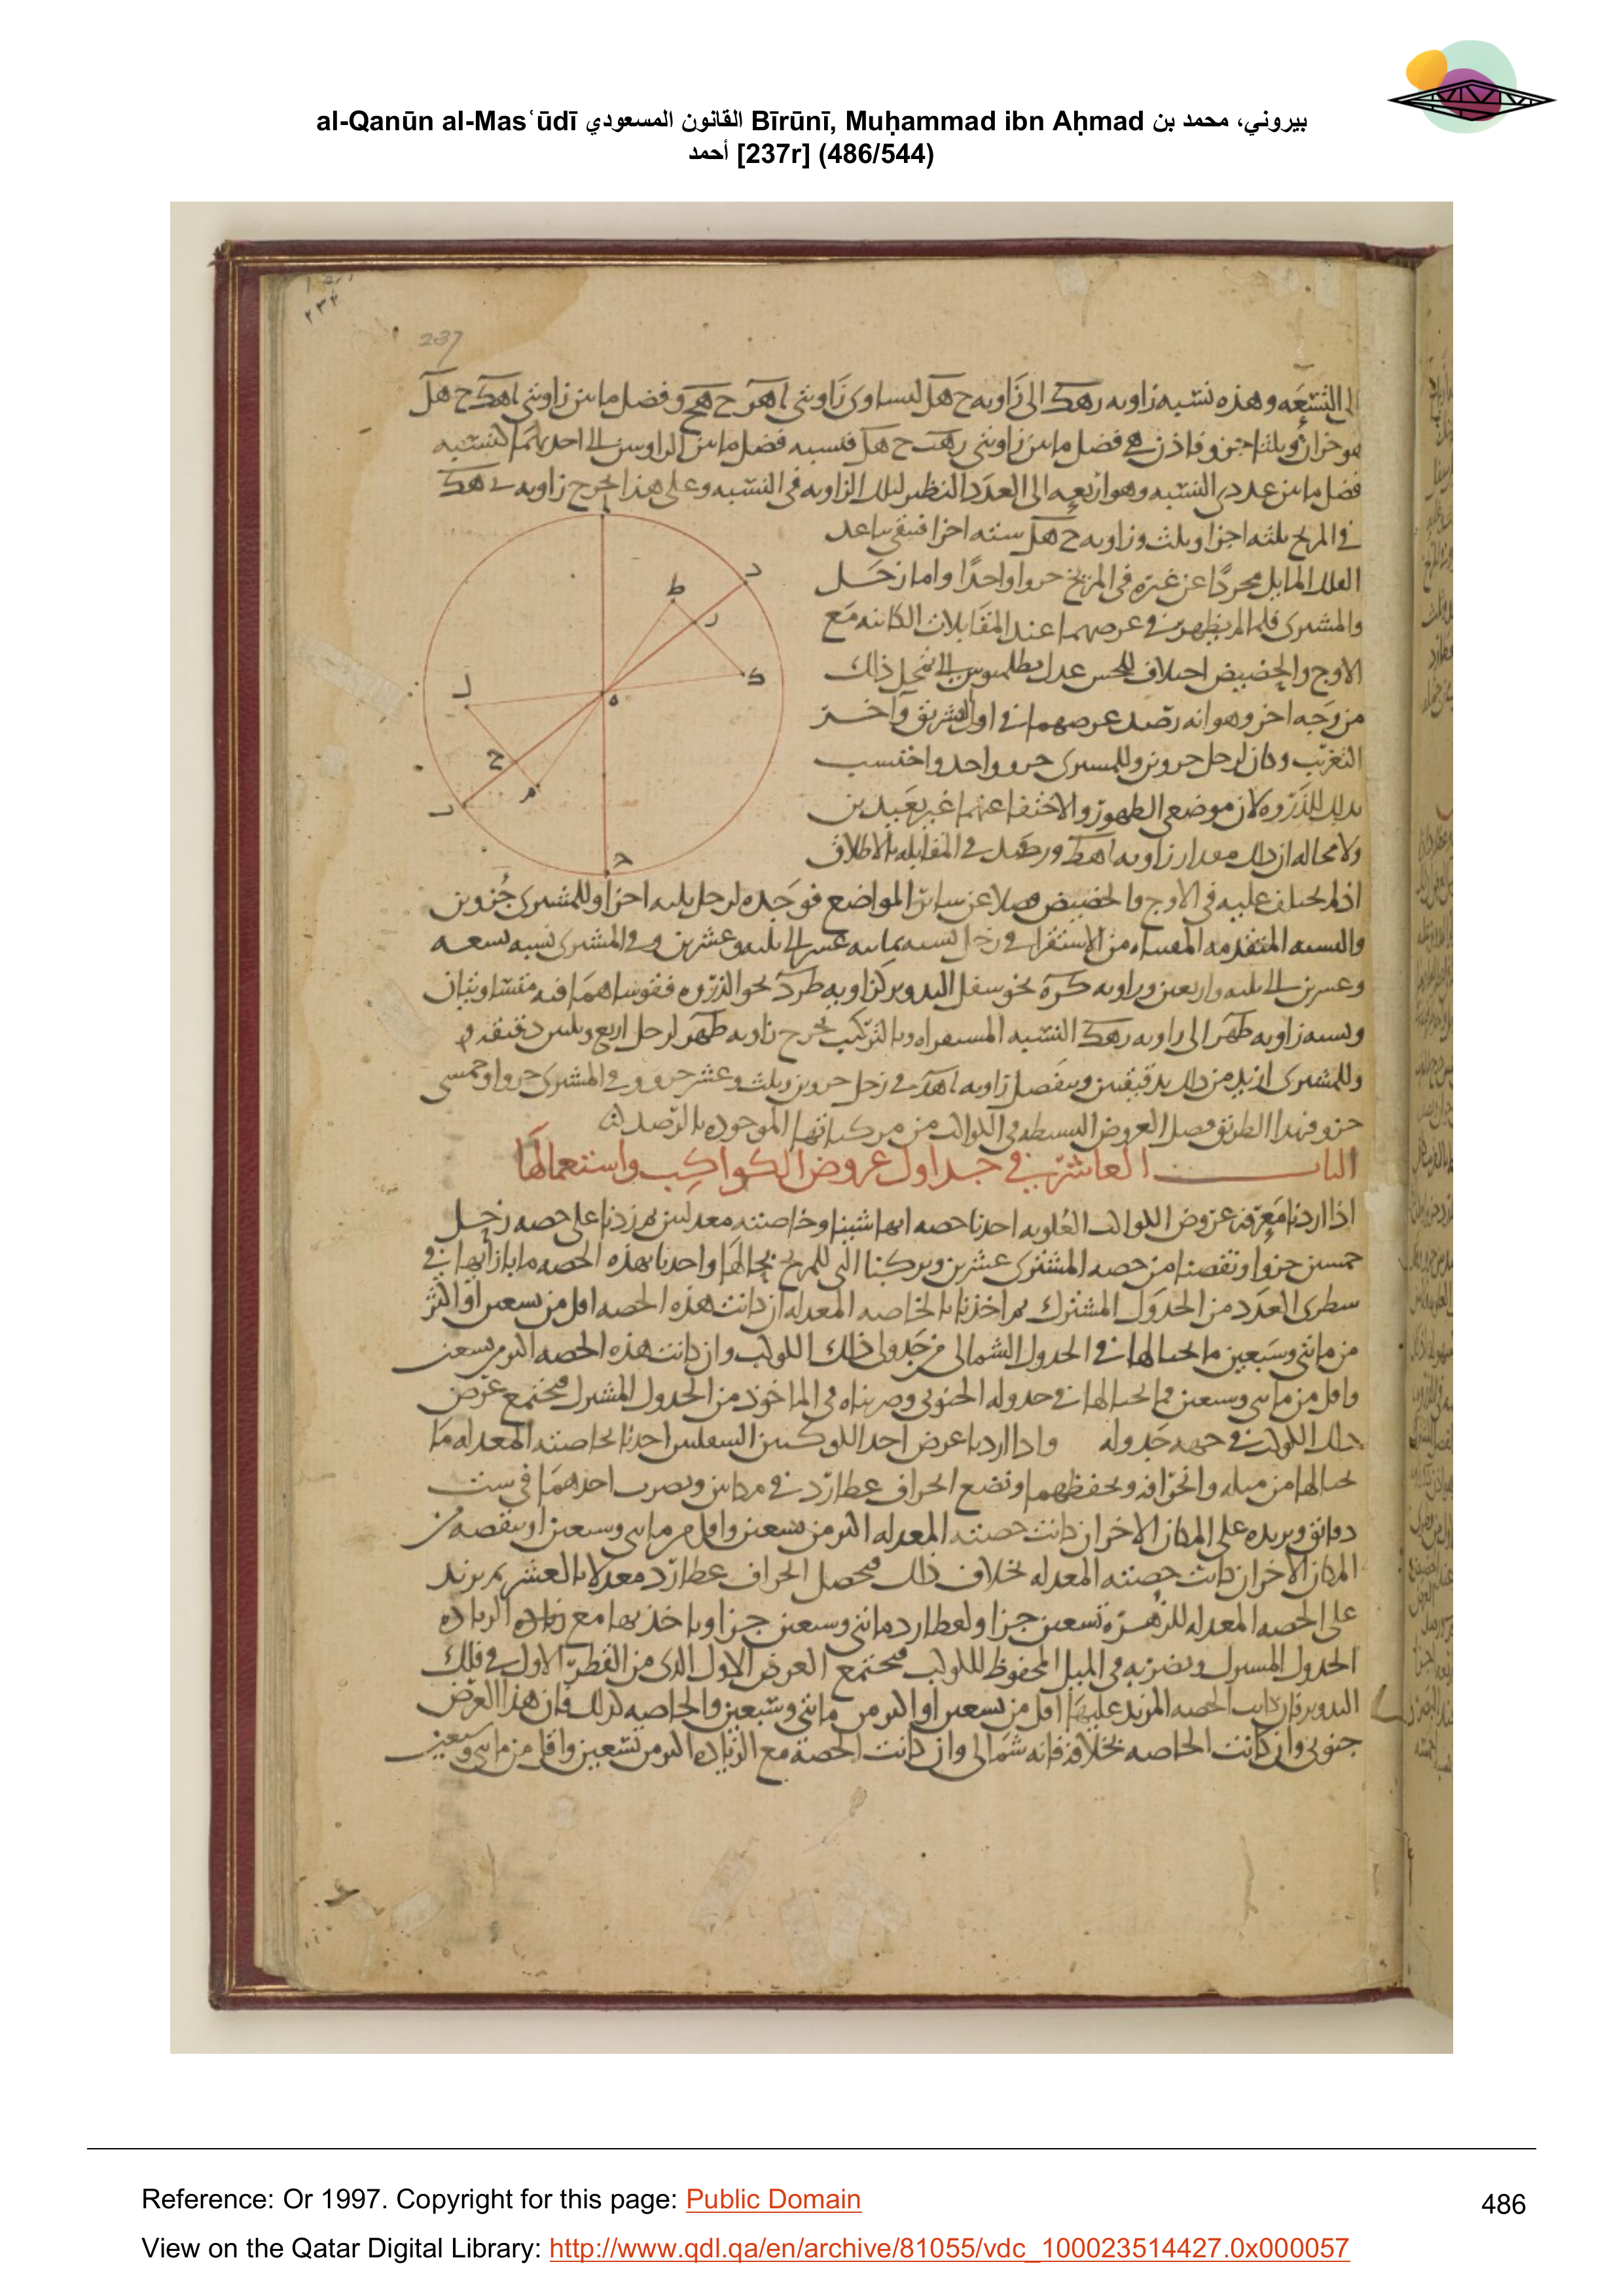 al-Qanūn al-Masʿūdī القانون المسعودي Bīrūnī, Muḥammad ibn Aḥmad بيروني، محمد بن
أحمد [237r] (486/544)
237
الى التسعه وهذه نسبه زاويه رهك الى زاويه ح هل لتساوى زاويتى اهر ح هج وفضل ما بين زاويتى اهك ح هل
هو جزان وثلثا جزو فاذن هى فضل ما بين زاويتى رهك ح هل فنسبه فضل ما بين الزاويتين الى احديهما كنسبه
فضل ما بين عددى النسبه وهو اربعه الى العدد النظير لتلك الزاويه فى النسبه وعلى هذا يخرج زاويه رهك
فى المريخ ثلثه اجزا وثلث وزاويه ح هل سته اجزا فيبقى تباعد
الفلك المايل مجردا عن غيره فى المريخ جزوا واحدا واما زحل
والمشترى فلما لم يظهر فى عرضهما عند المقابلات الكائنه مع
الاوج والحضيض اختلاف للحس عدل بطلميوس الى تمحل ذلك
من وجه اخر وهو انه رصد عرضهما فى اول التشريق وآخر
التغريب وكان لزحل جزوين وللمشترى جزو واحد واحتسب
بذلك للذروه لان موضعى الظهور والاختفا عنها غير بعيدين
ولا محاله ان ذلك مقدار زاويه اهط ورصد فى المقابله بالاطلاق
اذ لم يختلف عليه فى الاوج والحضيض فضلا عن سائر المواضع فوجده لزحل ثلثه اجزا وللمشترى جزوين
والنسبه المتقدمه من الاستقرا فى زحل نسبه ثمانيه عشر الى ثلثه وعشرين وفى المشترى نسبه تسعه
وعشرين الى ثلثه واربعين وزاويه كره نحو سفل التدوير كزاويه طرد نحو الذروه فقوساهما فيه متساويتان
ونسبه زاويه طهر الى زاويه رهك النسبه المستقراه وبالتركيب يخرج زاويه طهر لزحل اربع وثلثين دقيقه
وللمشترى ازيد من ذلك بدقيقتين وينفصل زاويه اهد فى زحل جزوين وثلث وعشر جزو وفى المشترى جزوا وخمسى
جزو فبهذا الطريق فصل العروض البسيطه فى الكواكب من مركباتها الموجوده بالرصد
الباب العاشر فى جداول عروض الكواكب واستعمالها
اذا اردنا معرفه عروض الكواكب العلويه اخذنا حصه ايها شينا وخاصته معدلتين ثم زدنا على حصه زحل
خمسين جزوا ونقصنا من حصه المشترى عشرين وتركنا التى للمريخ بحالها واخذنا بهذه الحصه ما بازايها فى
سطرى العدد من الجدول المشترك ثم اخذنا بالخاصه المعدله ان كانت هذه الحصه اقل من تسعين او اكثر
من مائتى وسبعين ما بحيالها فى الجدول الشمالى من جدولى ذلك الكوكب وان كانت هذه الحصه اكثر من تسعين
واقل من مائتى وسبعين فما بحيالها فى جدوله الجنوبى وضربناه فى الماخوذ من الجدول المشترك فيجتمع عرض
ذلك الكوكب فى جهه جدوله واذا اردنا عرض احد الكوكبين السفليين اخذنا بخاصته المعدله ما
بحيالها من ميله وانحرافه ونحفظهما ونضع انحراف عطارد فى مكانين ونضرب احدهما فى ست
دقائق ونزيده على المكان الاخر ان كانت حصته المعدله اكثر من تسعين واقل من مائتى وسبعين او ننقصه من
المكان الاخر ان كانت حصته المعدله بخلاف ذلك فيحصل انحراف عطارد معدلا بالعشر ثم نزيد
على الحصه المعدله للزهره تسعين جزا ولعطارد مائتى وسبعين جزا وناخذ بها مع زياده الزياده
الجدول المشترك ونضربه فى الميل المحفوظ للكوكب فيجتمع العرض الاول الذى من القطر الاول فى فلك
التدوير فان كانت الحصه المزيد عليها اقل من تسعين او اكثر من مائتى وسبعين والخاصه كذلك فان هذا العرض
جنوبى وان كانت الخاصه بخلافه فانه شمالى وان كانت الحصه مع الزياده اكثر من تسعين واقل من مائتى وسبعين
ا
د
ط
ر
ك
ه
ل
ح
م
ب
ج
Reference: Or 1997. Copyright for this page: Public Domain
486
View on the Qatar Digital Library: http://www.qdl.qa/en/archive/81055/vdc_100023514427.0x000057